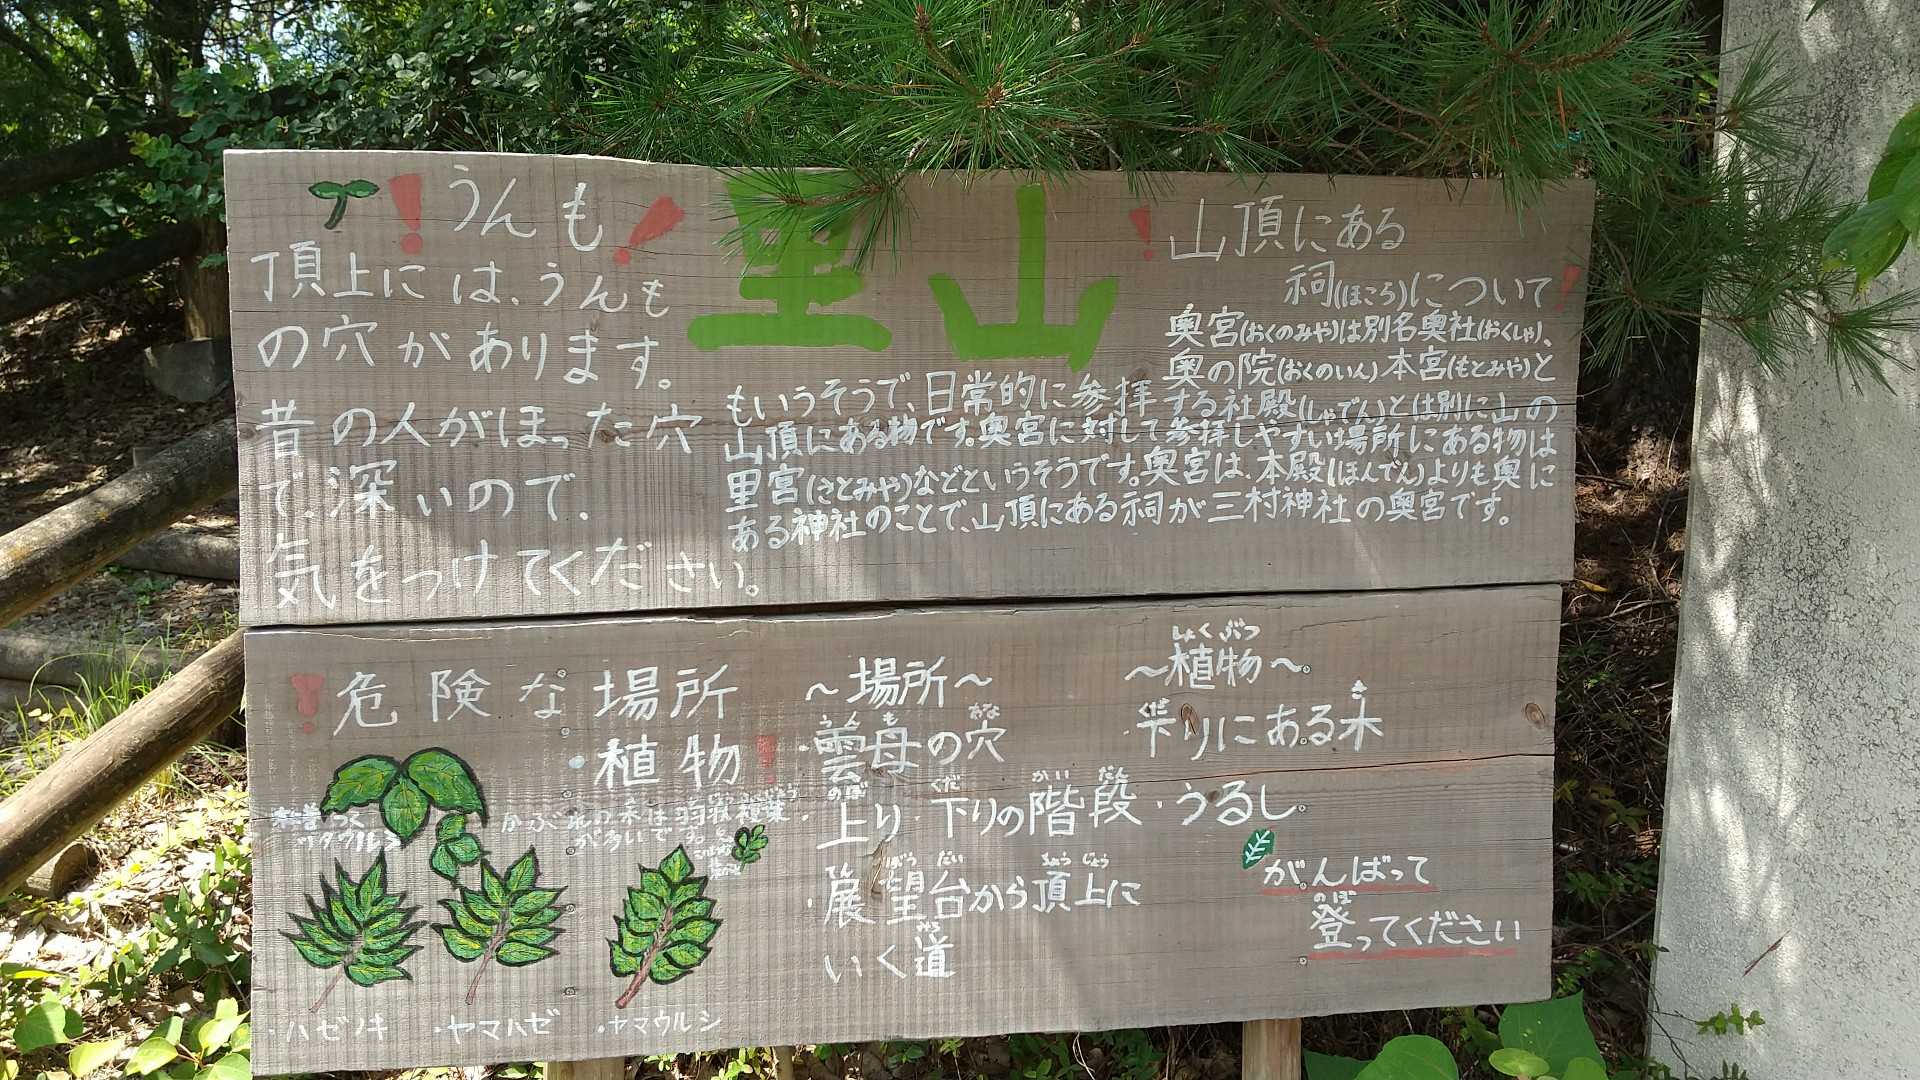 ！うんも！
頂上には、うんも
の穴があります。
昔の人がほった穴
で、深いので、
気をつけてください。
里山
！山頂にある
祠(ほこら)について！
奥宮(おくのみや)は別名奥社(おくしゃ)、
奥の院(おくのいん)本宮(もとみや)と
もいうそうで、日常的に参拝する社殿(しゃでん)とは別に山の
山頂にある物です。奥宮に対して参拝しやすい場所にある物は
里宮(さとみや)などというそうです。奥宮は、本殿(ほんでん)よりも奥に
ある神社のことで、山頂にある祠が三村神社の奥宮です。
！危険な場所
・植物！
ツタウルシ
かぶれの木は羽状複葉
が多いです。
・ハゼノキ
・ヤマハゼ
・ヤマウルシ
～場所～
うん も あな
・雲母の穴
のぼ くだ かい だん
・上り・下りの階段
てん ぼう だい ちょう じょう
・展望台から頂上に
みち
いく道
しょくぶつ
～植物～
くだ き
・下りにある木
・うるし
がんばって
のぼ
登ってください